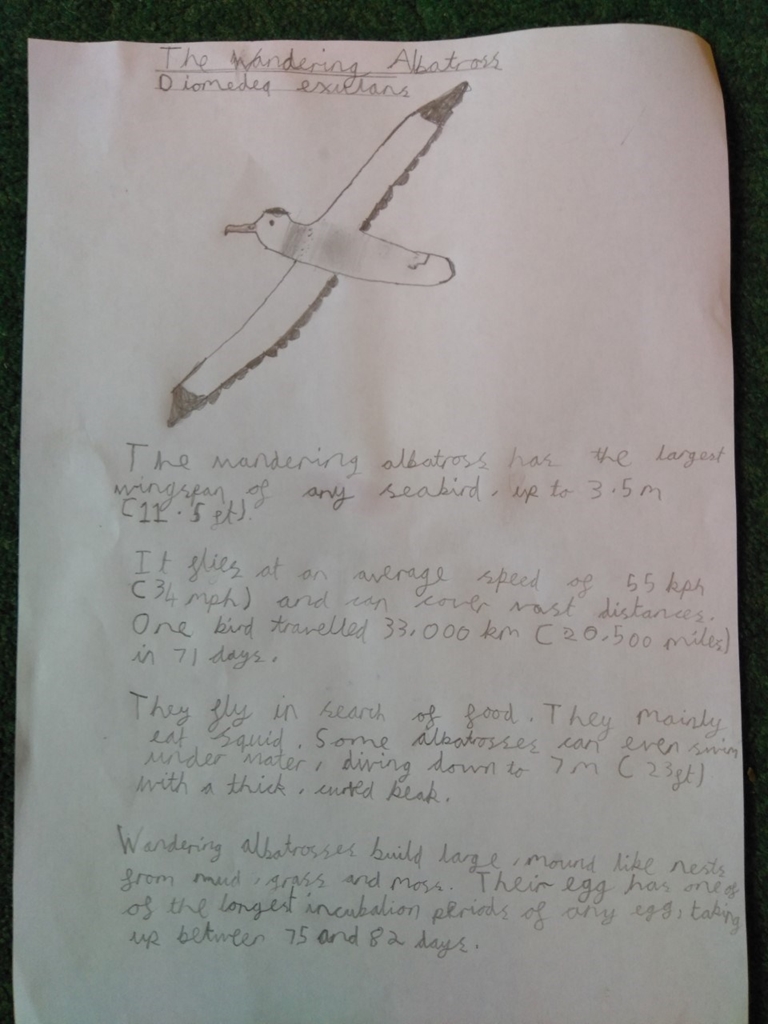 The Wandering Albatross
Diomedea exulans
The wandering albatross has the largest
wingspan of any seabird, up to 3.5m
(11.5ft).
It flies at an average speed of 55 kph
(34 mph) and can cover vast distances.
One bird travelled 33,000 km (20,500 miles)
in 71 days.
They fly in search of food. They mainly
eat squid. Some albatrosses can even swim
under water, diving down to 7m (23ft)
with a thick, curved beak.
Wandering albatrosses build large, mound like nests
from mud, grass and moss. Their egg has one of
of the longest incubation periods of any egg, taking
up between 75 and 82 days.